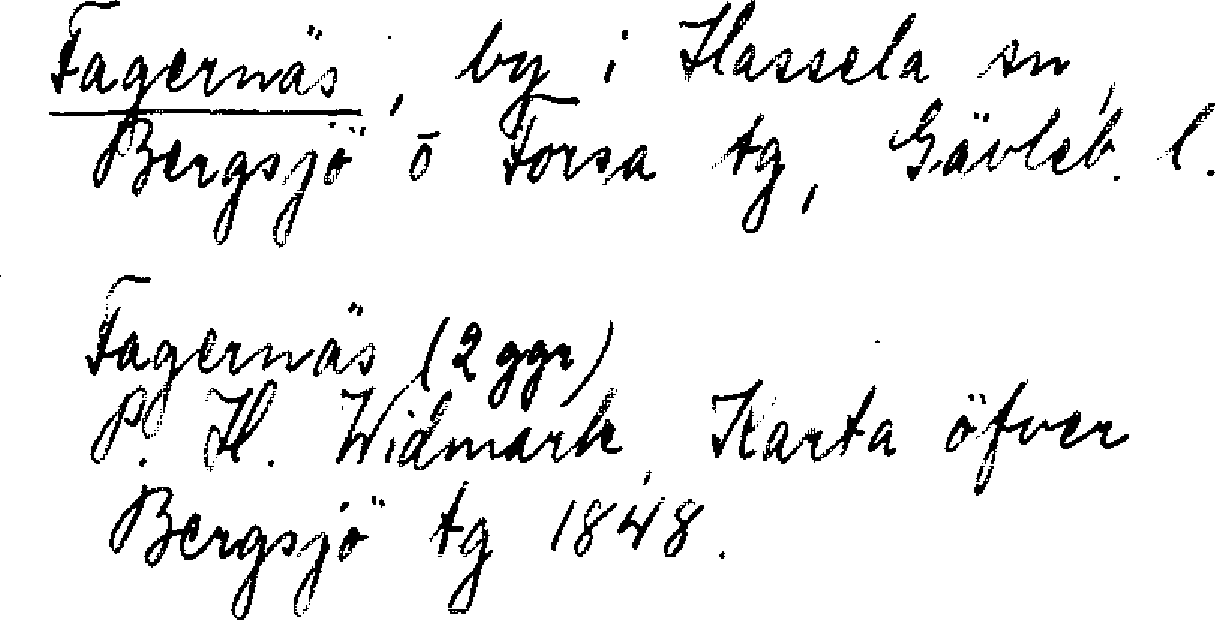 Fagernäs, by i Hassela sn,
Bergsjö o Forsa tg, Gävleb. l.
Fagernäs (2 ggr)
P. H. Widmark, Karta öfver
Bergsjö tg 1848.